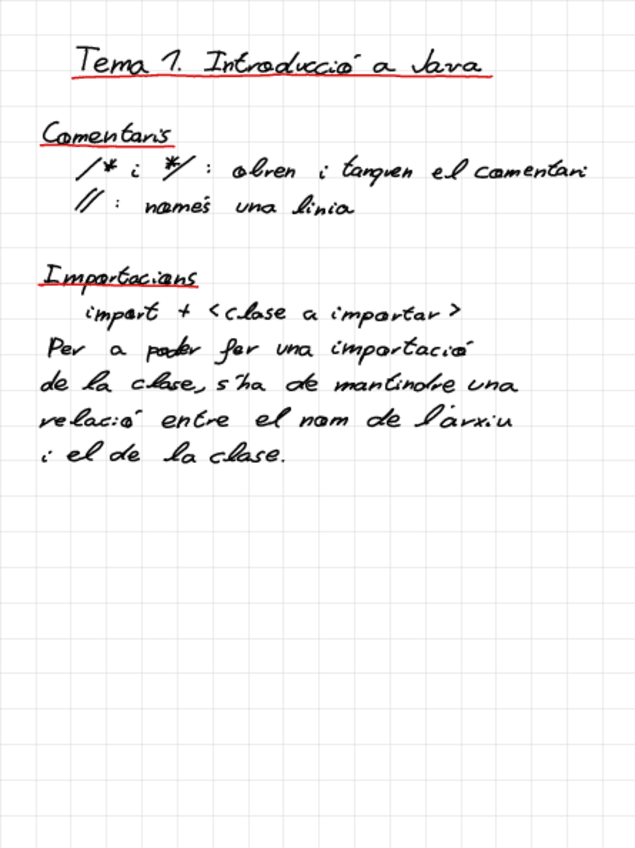 Tema 1. Introducció a Java
Comentaris
/* i */ : obren i tanquen el comentari
// : només una linia
Importacions
import + <clase a importar>
Per a poder fer una importació
de la clase, s'ha de mantindre una
relació entre el nom de l'arxiu
i el de la clase.